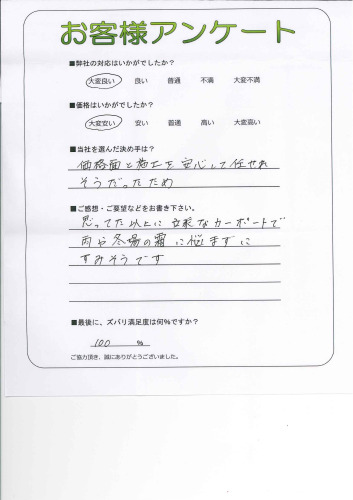 お客様アンケート
■弊社の対応はいかがでしたか？
大変良い 良い 普通 不満 大変不満
■価格はいかがでしたか？
大変安い 安い 普通 高い 大変高い
■当社を選んだ決め手は？
価格面と施工を安心して任せれ
そうだったため
■ご感想・ご要望などをお書き下さい。
思ってた以上に立派なカーポートで
雨や冬場の霜に悩まずに
すみそうです
■最後に、ズバリ満足度は何％ですか？
100 %
ご協力頂き、誠にありがとうございました。